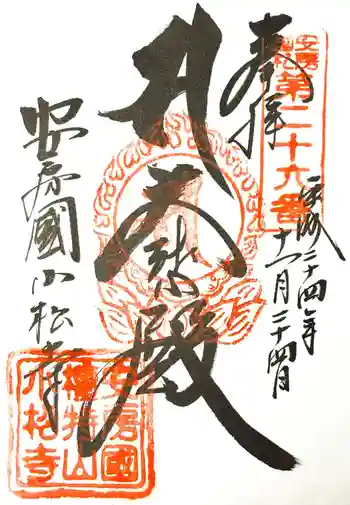 奉拝
第二十六番
平成二十四年
十一月二十四日
大悲殿
安房國小松寺
安房國
檀特山
小松寺